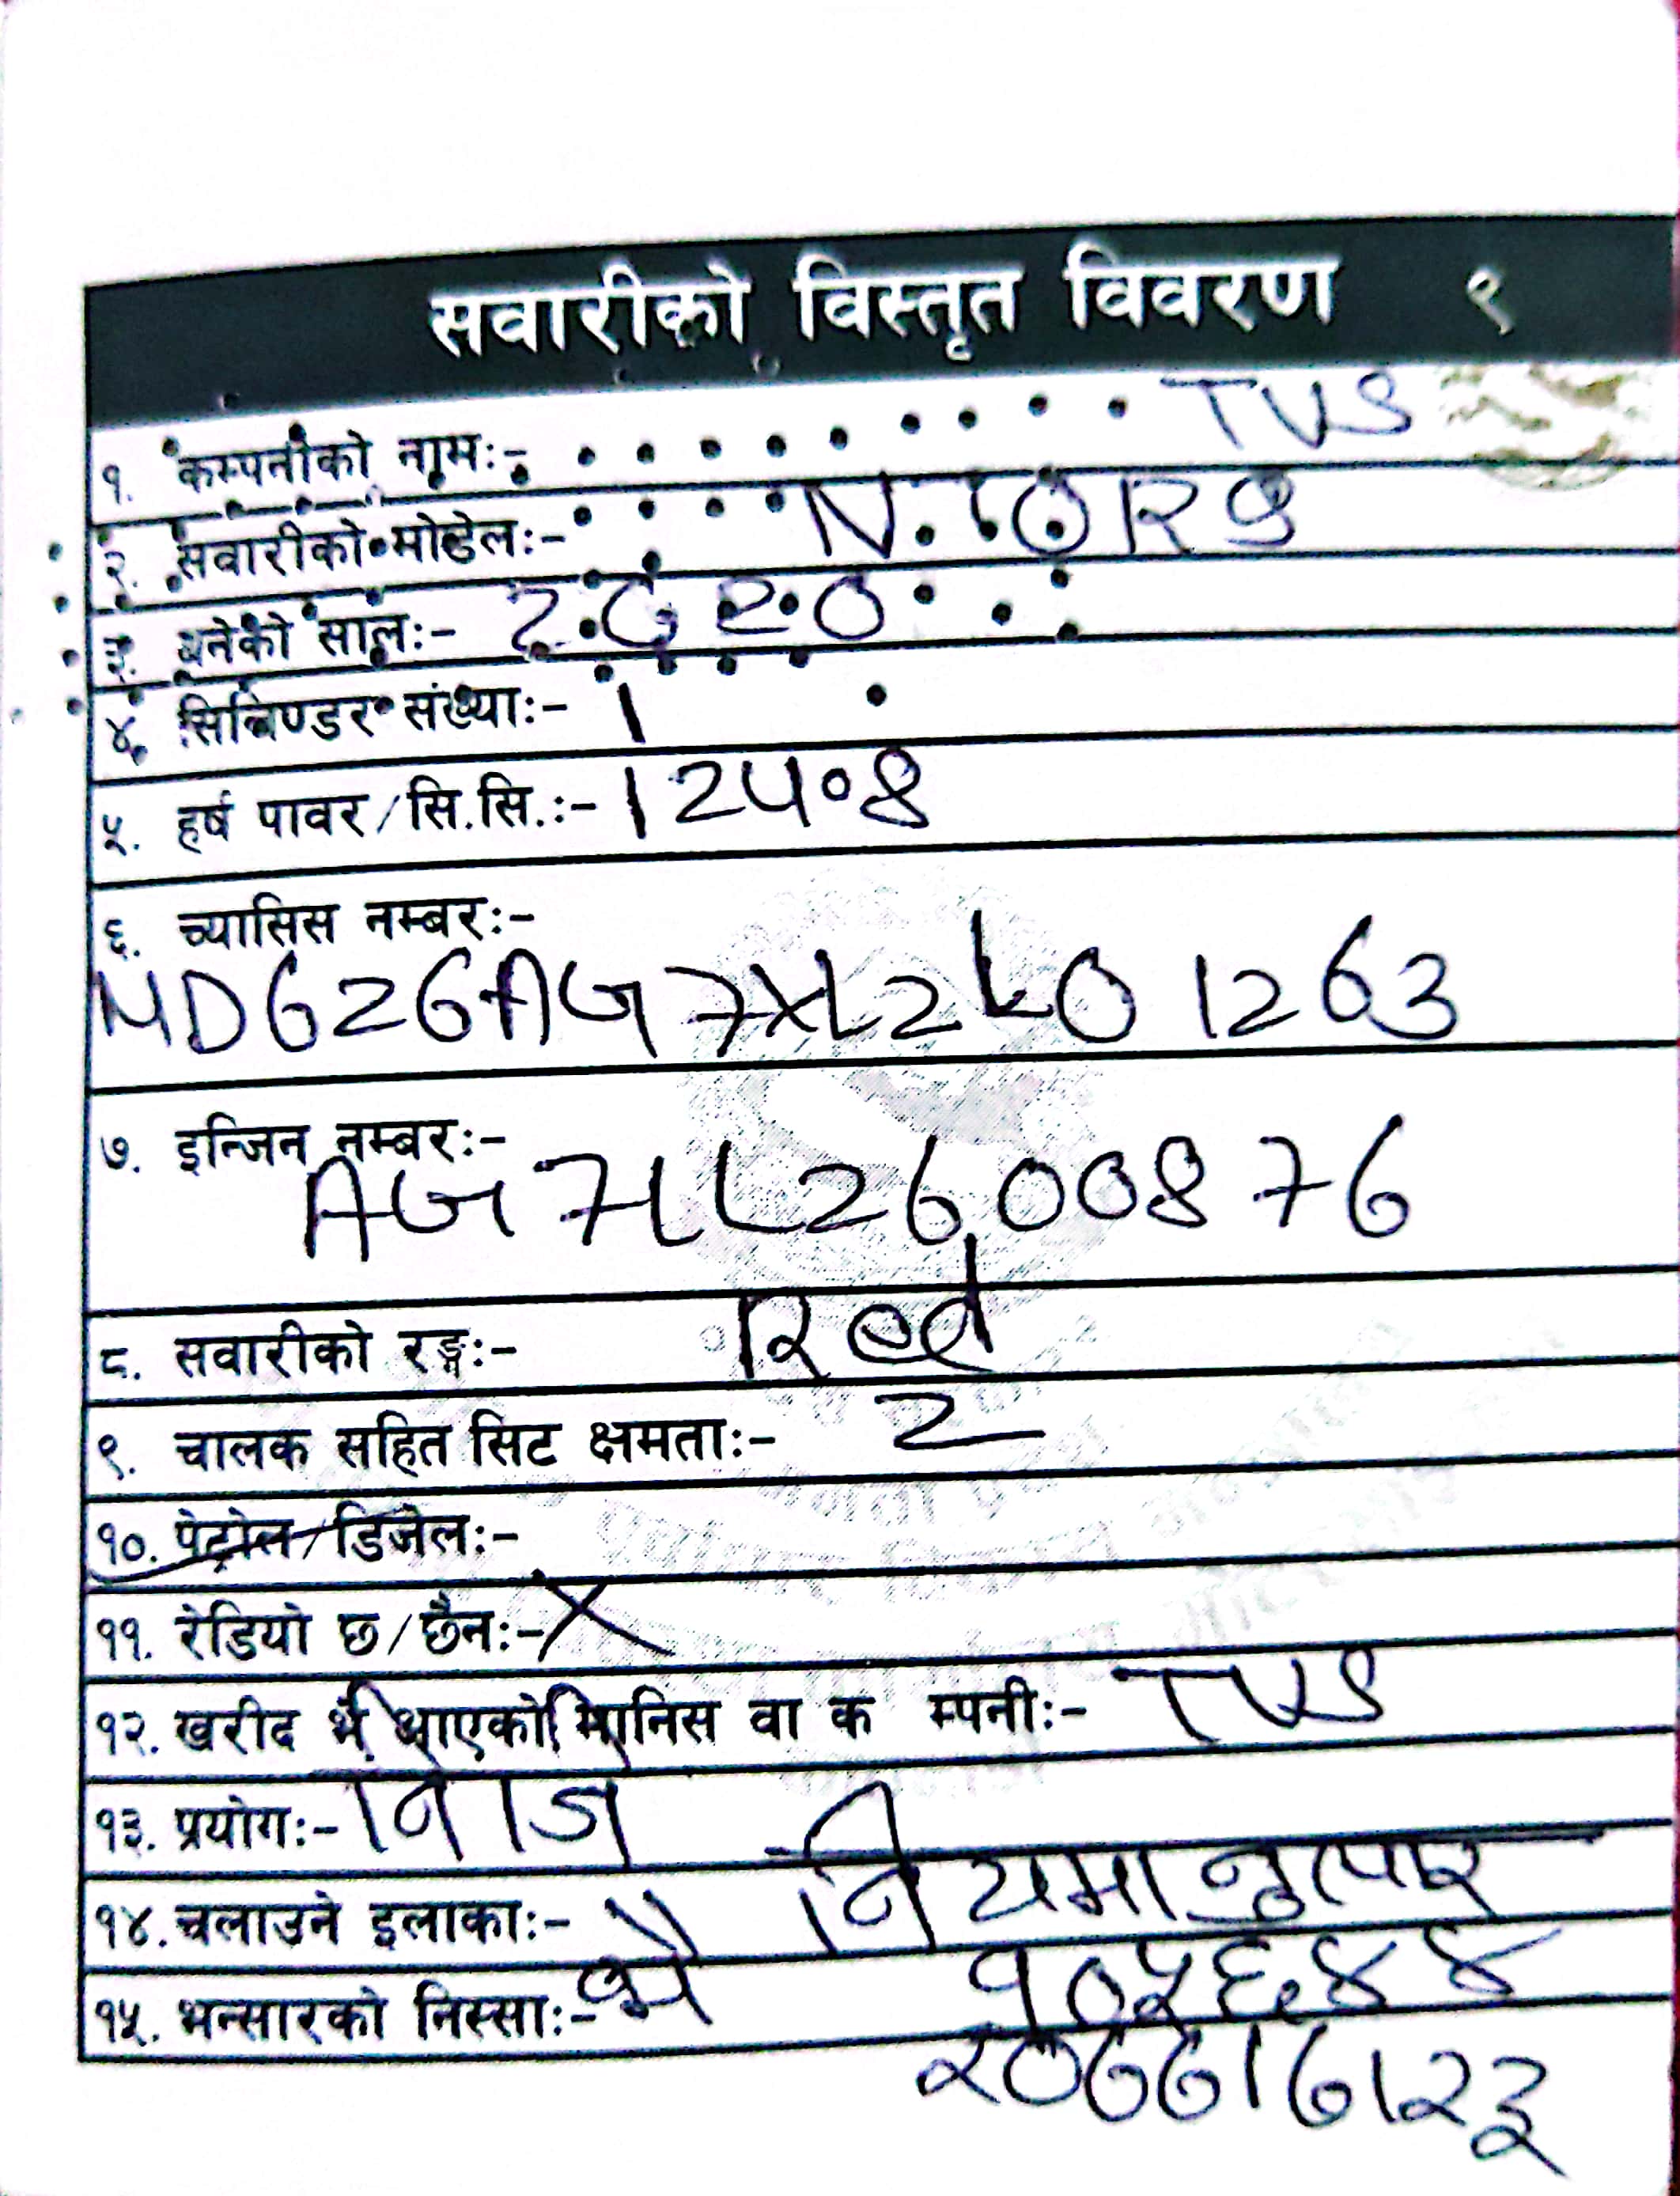 सवारीको विस्तृत विवरण ९
१. कम्पनीको नामः- TVS
२. सवारीको मोडेलः- N.TORQ
३. बनेको सालः- 2020
४. सिलिण्डर संख्याः- 1
५. हर्ष पावर/सि.सि.ः- 124.8
६. च्यासिस नम्बरः-
MD626AG7XL2L01263
७. इन्जिन नम्बरः-
AG7LL2600876
८. सवारीको रङ्गः- Red
९. चालक सहित सिट क्षमताः- 2
१०. पेट्रोल/डिजेलः-
११. रेडियो छ/छैनः- X
१२. खरीद भै आएको मानिस वा क म्पनीः- TVS
१३. प्रयोगः- निजि
१४. चलाउने इलाकाः- नियमानुसार
१५. भन्सारको निस्साः- भै १०५६४४
२०७७।७।२३